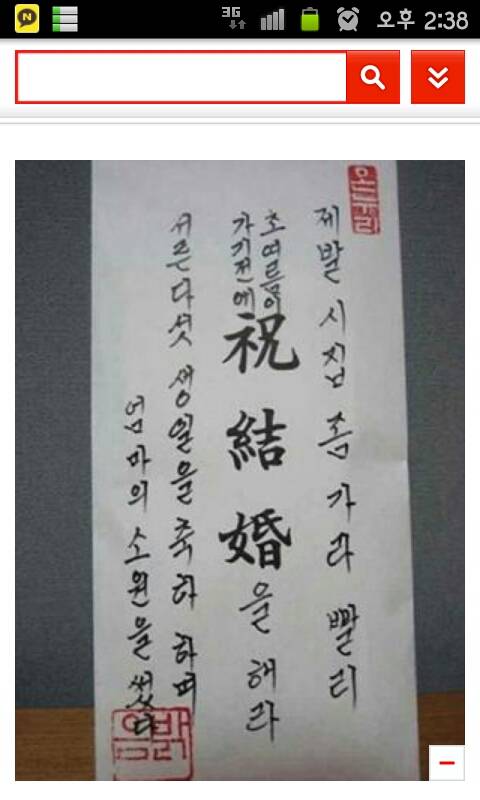 N
3G
오후 2:38
온누리
제발 시집 좀 가라 빨리
초여름이
가기전에
祝結婚을 해라
서른다섯 생일을 축하 하며
엄마의 소원을 썼다
밝음